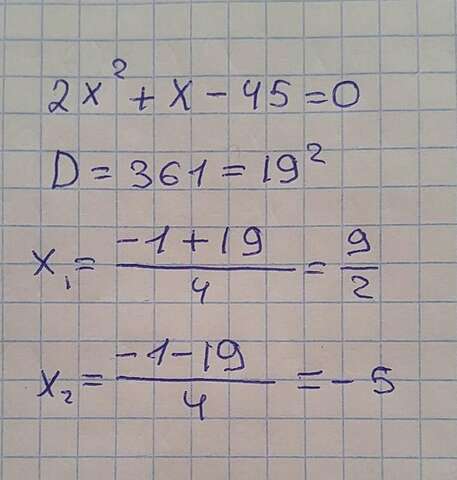 2x² + x - 45 = 0
D = 361 = 19²
x₁ = (-1 + 19)/4 = 9/2
x₂ = (-1 - 19)/4 = -5